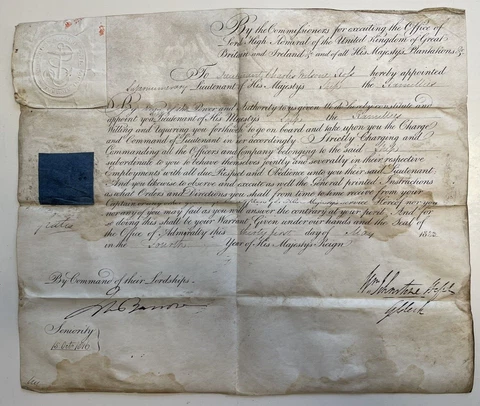 By the Commissioners for executing the Office of
Lord High Admiral of the United Kingdom of Great
Britain and Ireland &c and of all His Majestys Plantations &c
To Lieutenant Charles hereby appointed
Supernumerary Lieutenant of His Majestys Ship the Ramillies
By Virtue of the Power and Authority to us given We do hereby constitute and
appoint you Lieutenant of His Majestys Ship the Ramillies
Willing and requiring you forthwith to go on board and take upon you the Charge
and Command of Lieutenant in her accordingly Strictly Charging and
Commanding all the Officers and Company belonging to the said Ship
subordinate to you to behave themselves jointly and severally in their respective
Employments with all due Respect and Obedience unto you their said Lieutenant
And you likewise to observe and execute as well the General printed Instructions
as what Orders and Directions you shall from time to time receive from your
Captain or His Majestys service Hereof nor you
nor any of you may fail as you will answer the contrary at your peril And for
so doing this shall be your Warrant Given under our hands and the Seal of
the Office of Admiralty this day of May
in the Year of His Majestys Reign
By Command of their Lordships
Barrow
G Clerk
Seniority